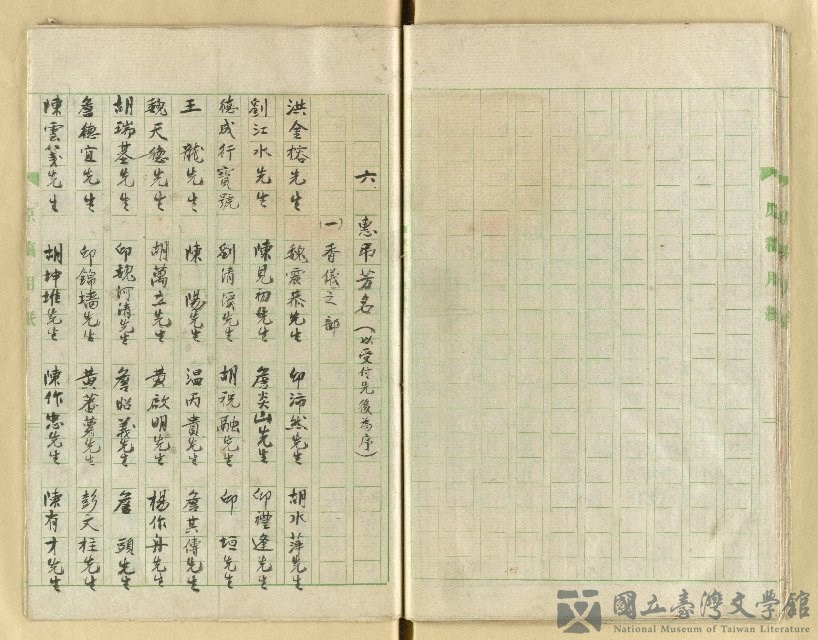 六、惠弔芳名(以受付先後為序)
(一)香儀之部
洪金榕先生 魏震泰先生 邱沛然先生 胡水萍先生
劉江水先生 陳見初先生 詹炎山先生 邱禮逢先生
德成行寶號 劉清溪先生 胡祝融先生 邱 垣先生
王 龍先生 陳 陽先生 温丙貴先生 詹其傳先生
魏天德先生 胡萬立先生 黄啟明先生 楊作舟先生
胡瑞基先生 邱魏河清先生 詹昭義先生 詹 頭先生
詹德宜先生 邱錦墻先生 黄 先生 彭文柱先生
陳雲箋先生 胡坤堆先生 陳作忠先生 陳有才先生
原稿用紙
國立臺灣文學館
National Museum of Taiwan Literature